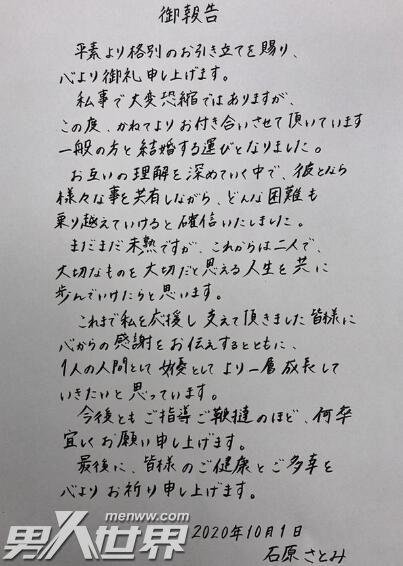 御報告
平素より格別のお引き立てを賜り、
心より御礼申し上げます。
私事で大変恐縮ではありますが、
この度、かねてよりお付き合いさせて頂いています
一般の方と結婚する運びとなりました。
お互いの理解を深めていく中で、彼となら
様々な事を共有しながら、どんな困難も
乗り越えていけると確信いたしました。
まだまだ未熟ですが、これからは二人で、
大切なものを大切だと思える人生を共に
歩んでいけたらと思います。
これまで私を応援し支えて頂きました皆様に
心からの感謝をお伝えするとともに、
1人の人間として女優としてより一層成長して
いきたいと思っています。
今後ともご指導ご鞭撻のほど、何卒
宜しくお願い申し上げます。
最後に、皆様のご健康とご多幸を
心よりお祈り申し上げます。
2020年10月1日
石原さとみ
menww.com
男人世界